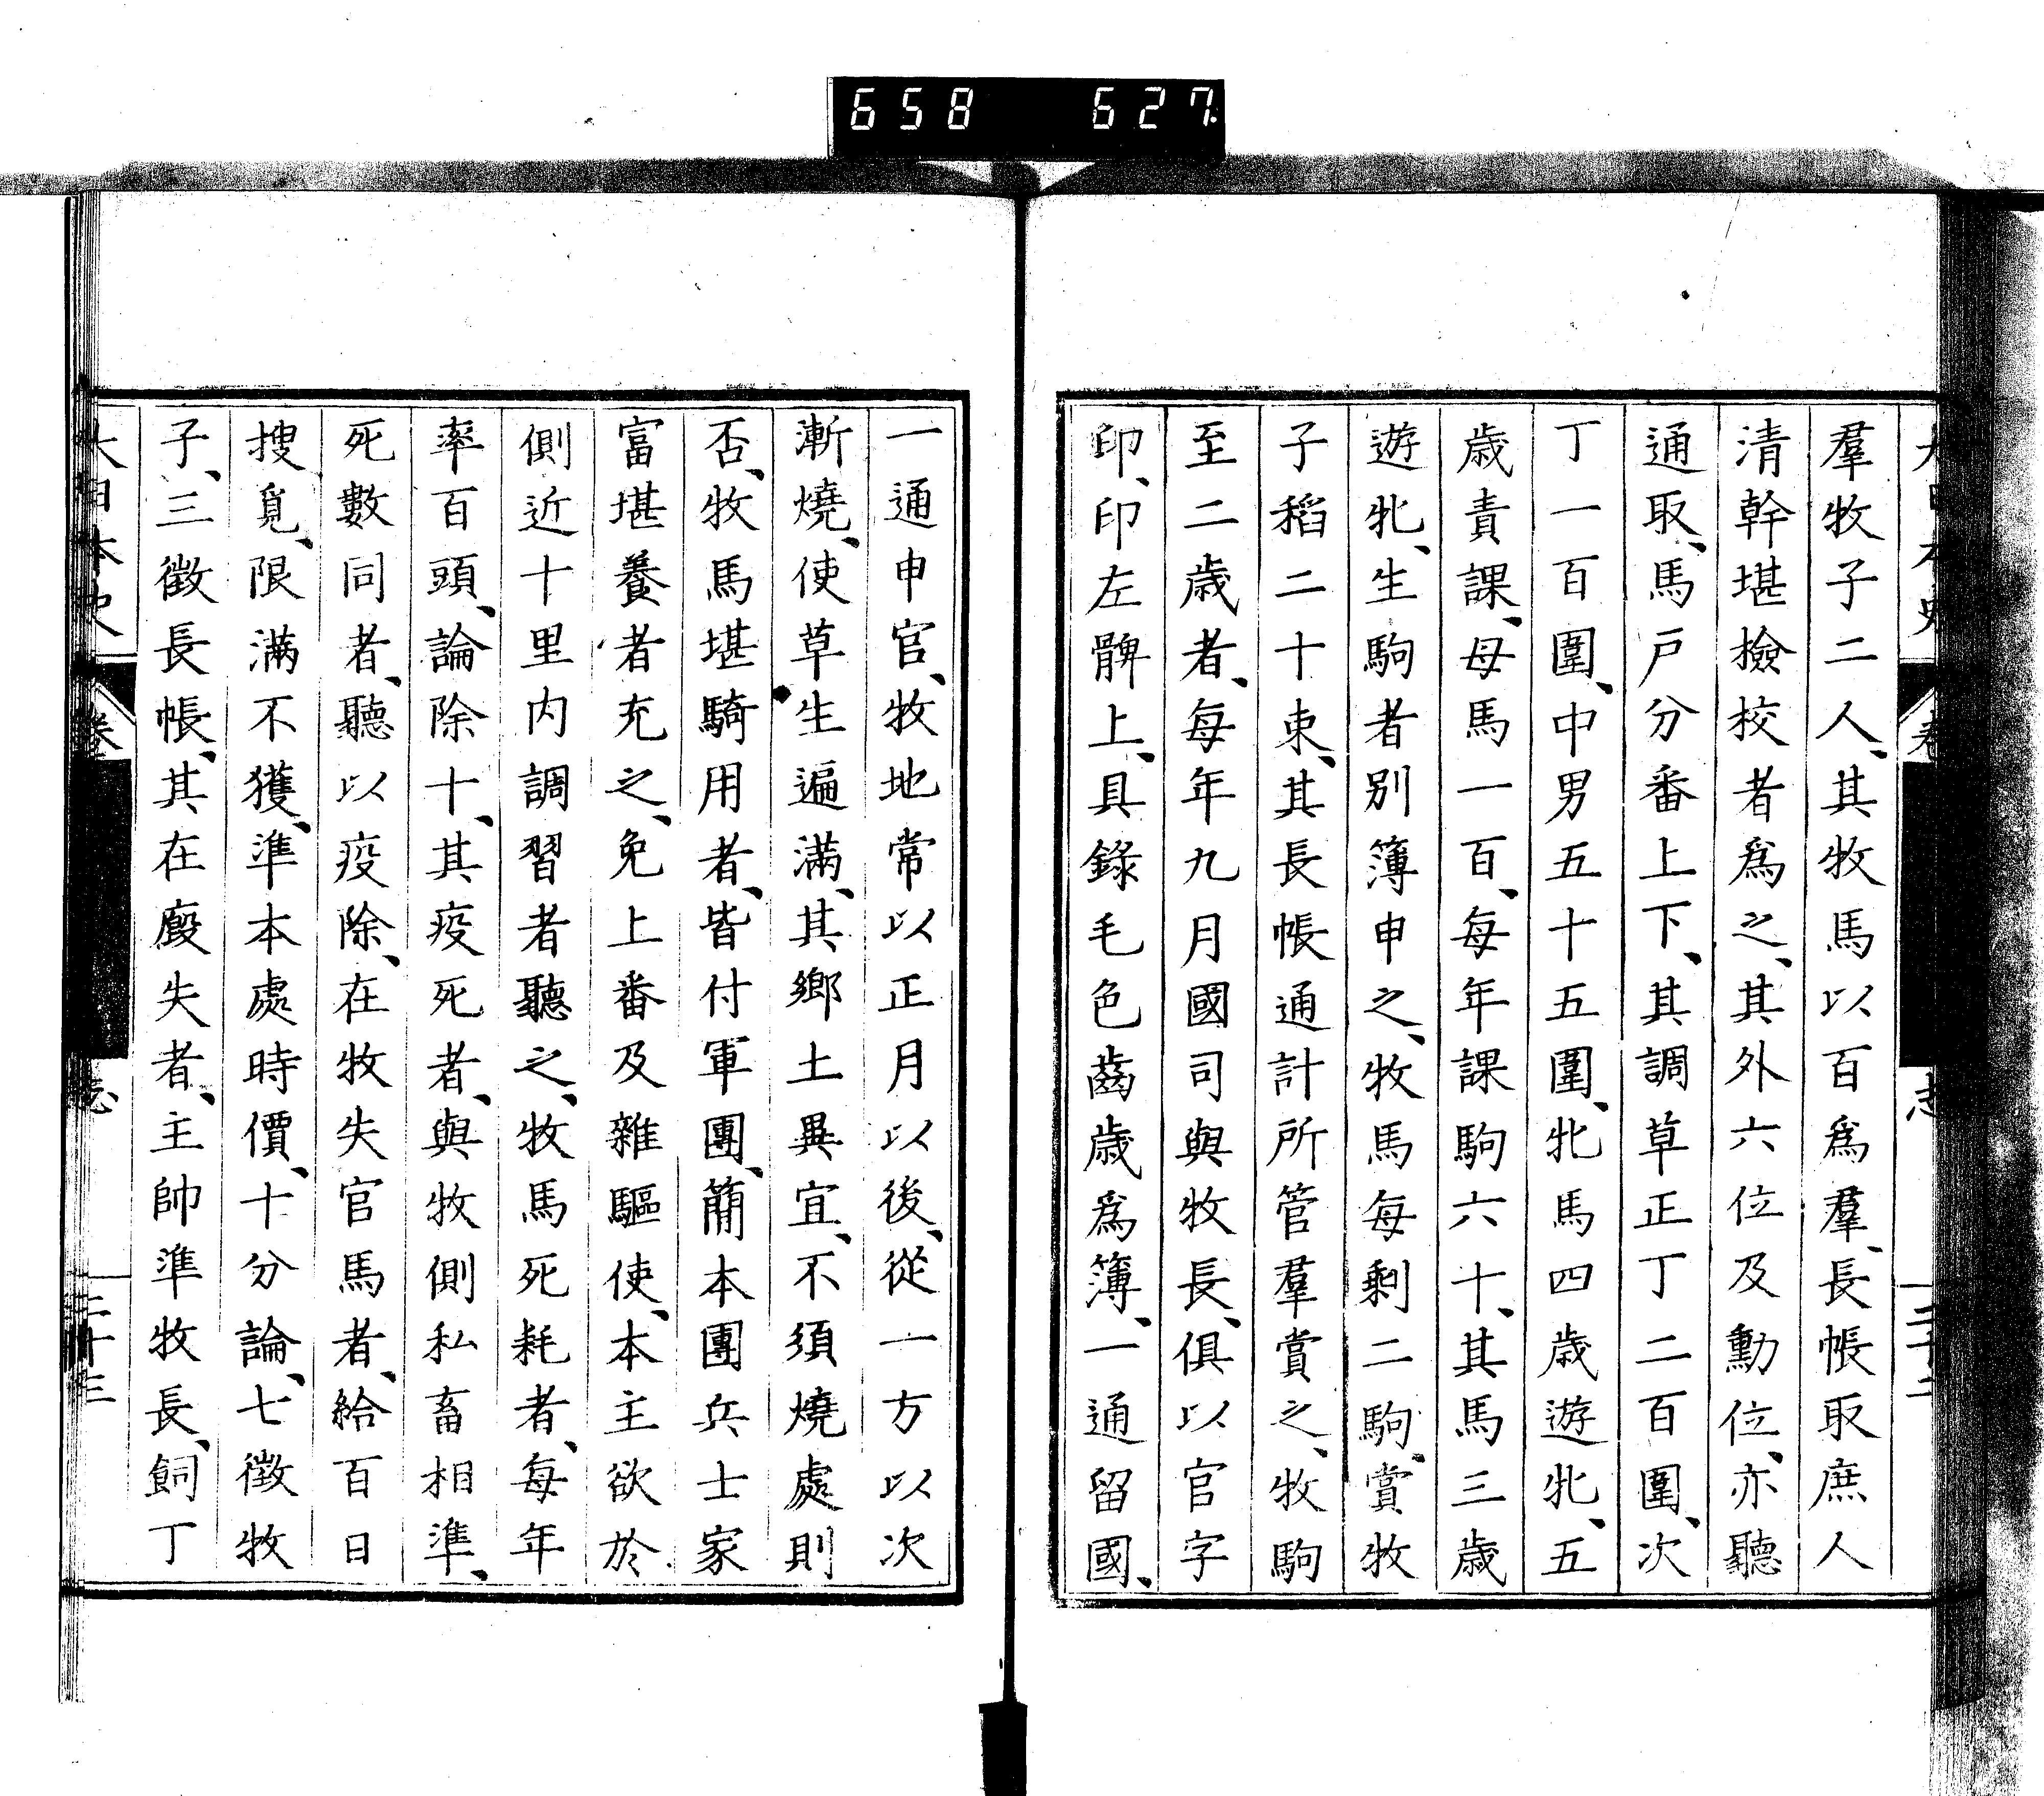 658 627
羣牧子二人、其牧馬以百爲羣、長帳取庶人
清幹堪撿校者爲之、其外六位及勳位、亦聽
通取、馬戸分番上下、其調草正丁二百圍、次
丁一百圍、中男五十五圍、牝馬四歳遊牝、五
歳責課、母馬一百、毎年課駒六十、其馬三歳
遊牝、生駒者別簿申之、牧馬毎剩二駒、賞牧
子稻二十束、其長帳通計所管羣賞之、牧駒
至二歳者、毎年九月國司與牧長、俱以官字
印、印左髀上、具錄毛色齒歳爲簿、一通留國、
一通申官、牧地常以正月以後、從一方以次
漸燒、使草生遍滿、其鄉土異宜、不須燒處則
否、牧馬堪騎用者、皆付軍團、簡本團兵士家
富堪養者充之、免上番及雜驅使、本主欲於
側近十里内調習者聽之、牧馬死耗者、毎年
率百頭、論除十、其疫死者、與牧側私畜相準、
死數同者、聽以疫除、在牧失官馬者、給百日
搜覓、限滿不獲、準本處時價、十分論、七徵牧
子、三徵長帳、其在廄失者、主帥準牧長、飼丁
大日本史 卷 志 三十三